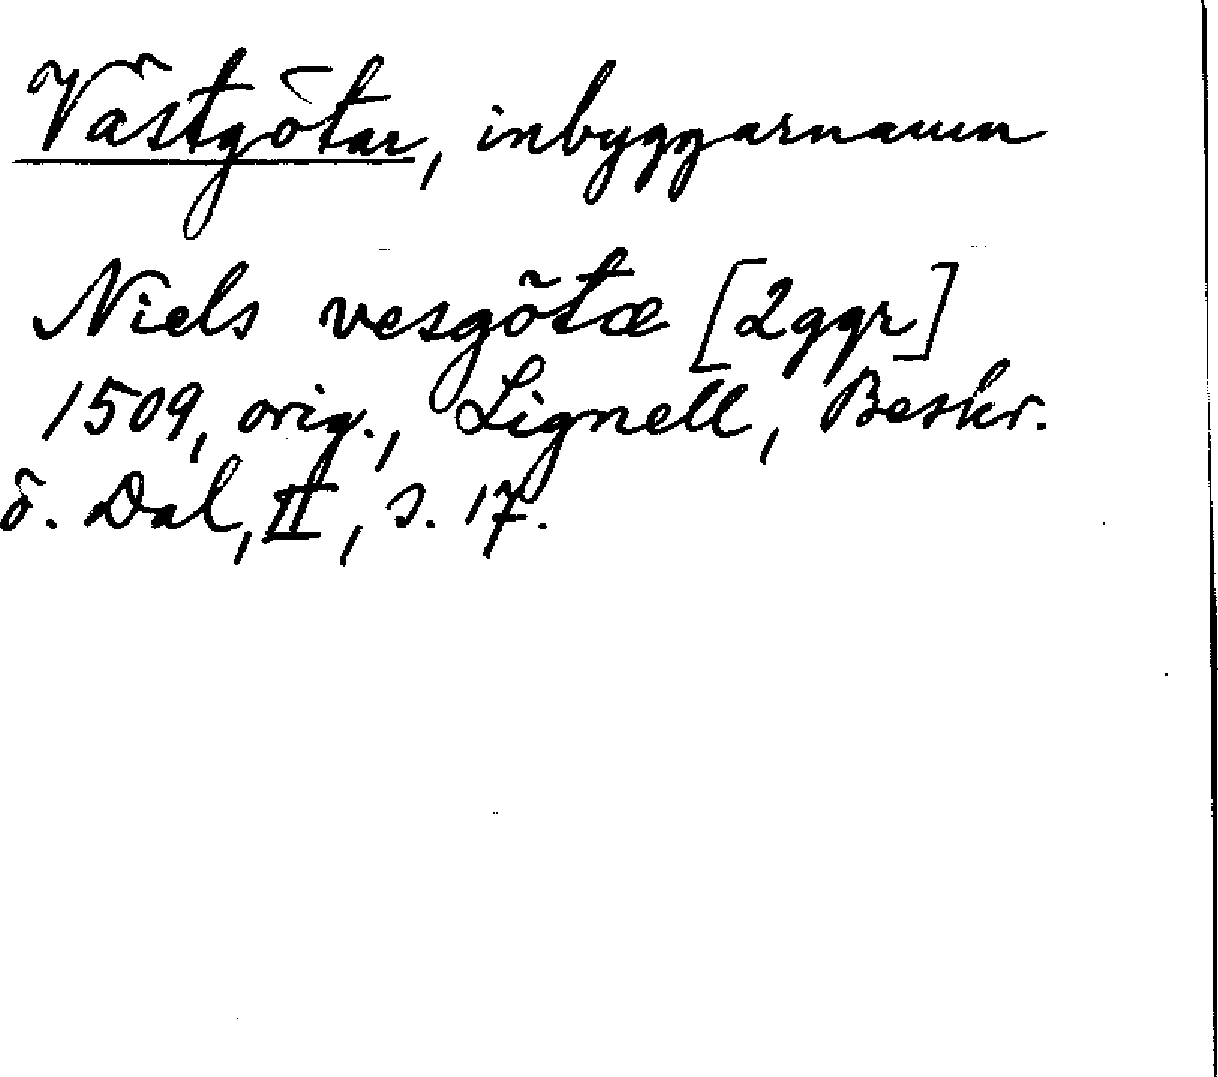 Västgötar, inbyggarnamn
Niels vesgötæ [2ggr]
1509, orig., Lignell, Beskr.
ö. Dal, II, s. 17.